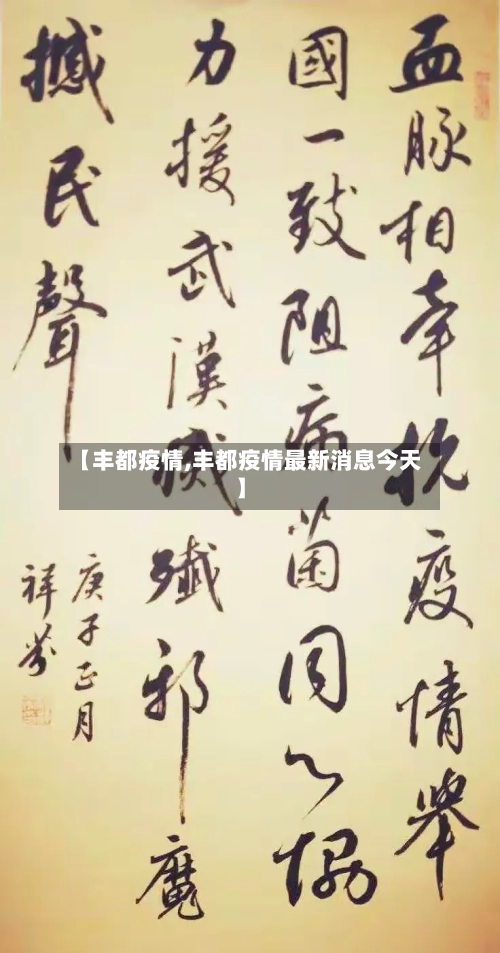 血脉相牵抗疫情舉
國一致阻病菌同心協
力援武漢滅殲邪魔
撼民聲
庚子正月
祥芬
【丰都疫情,丰都疫情最新消息今天
】